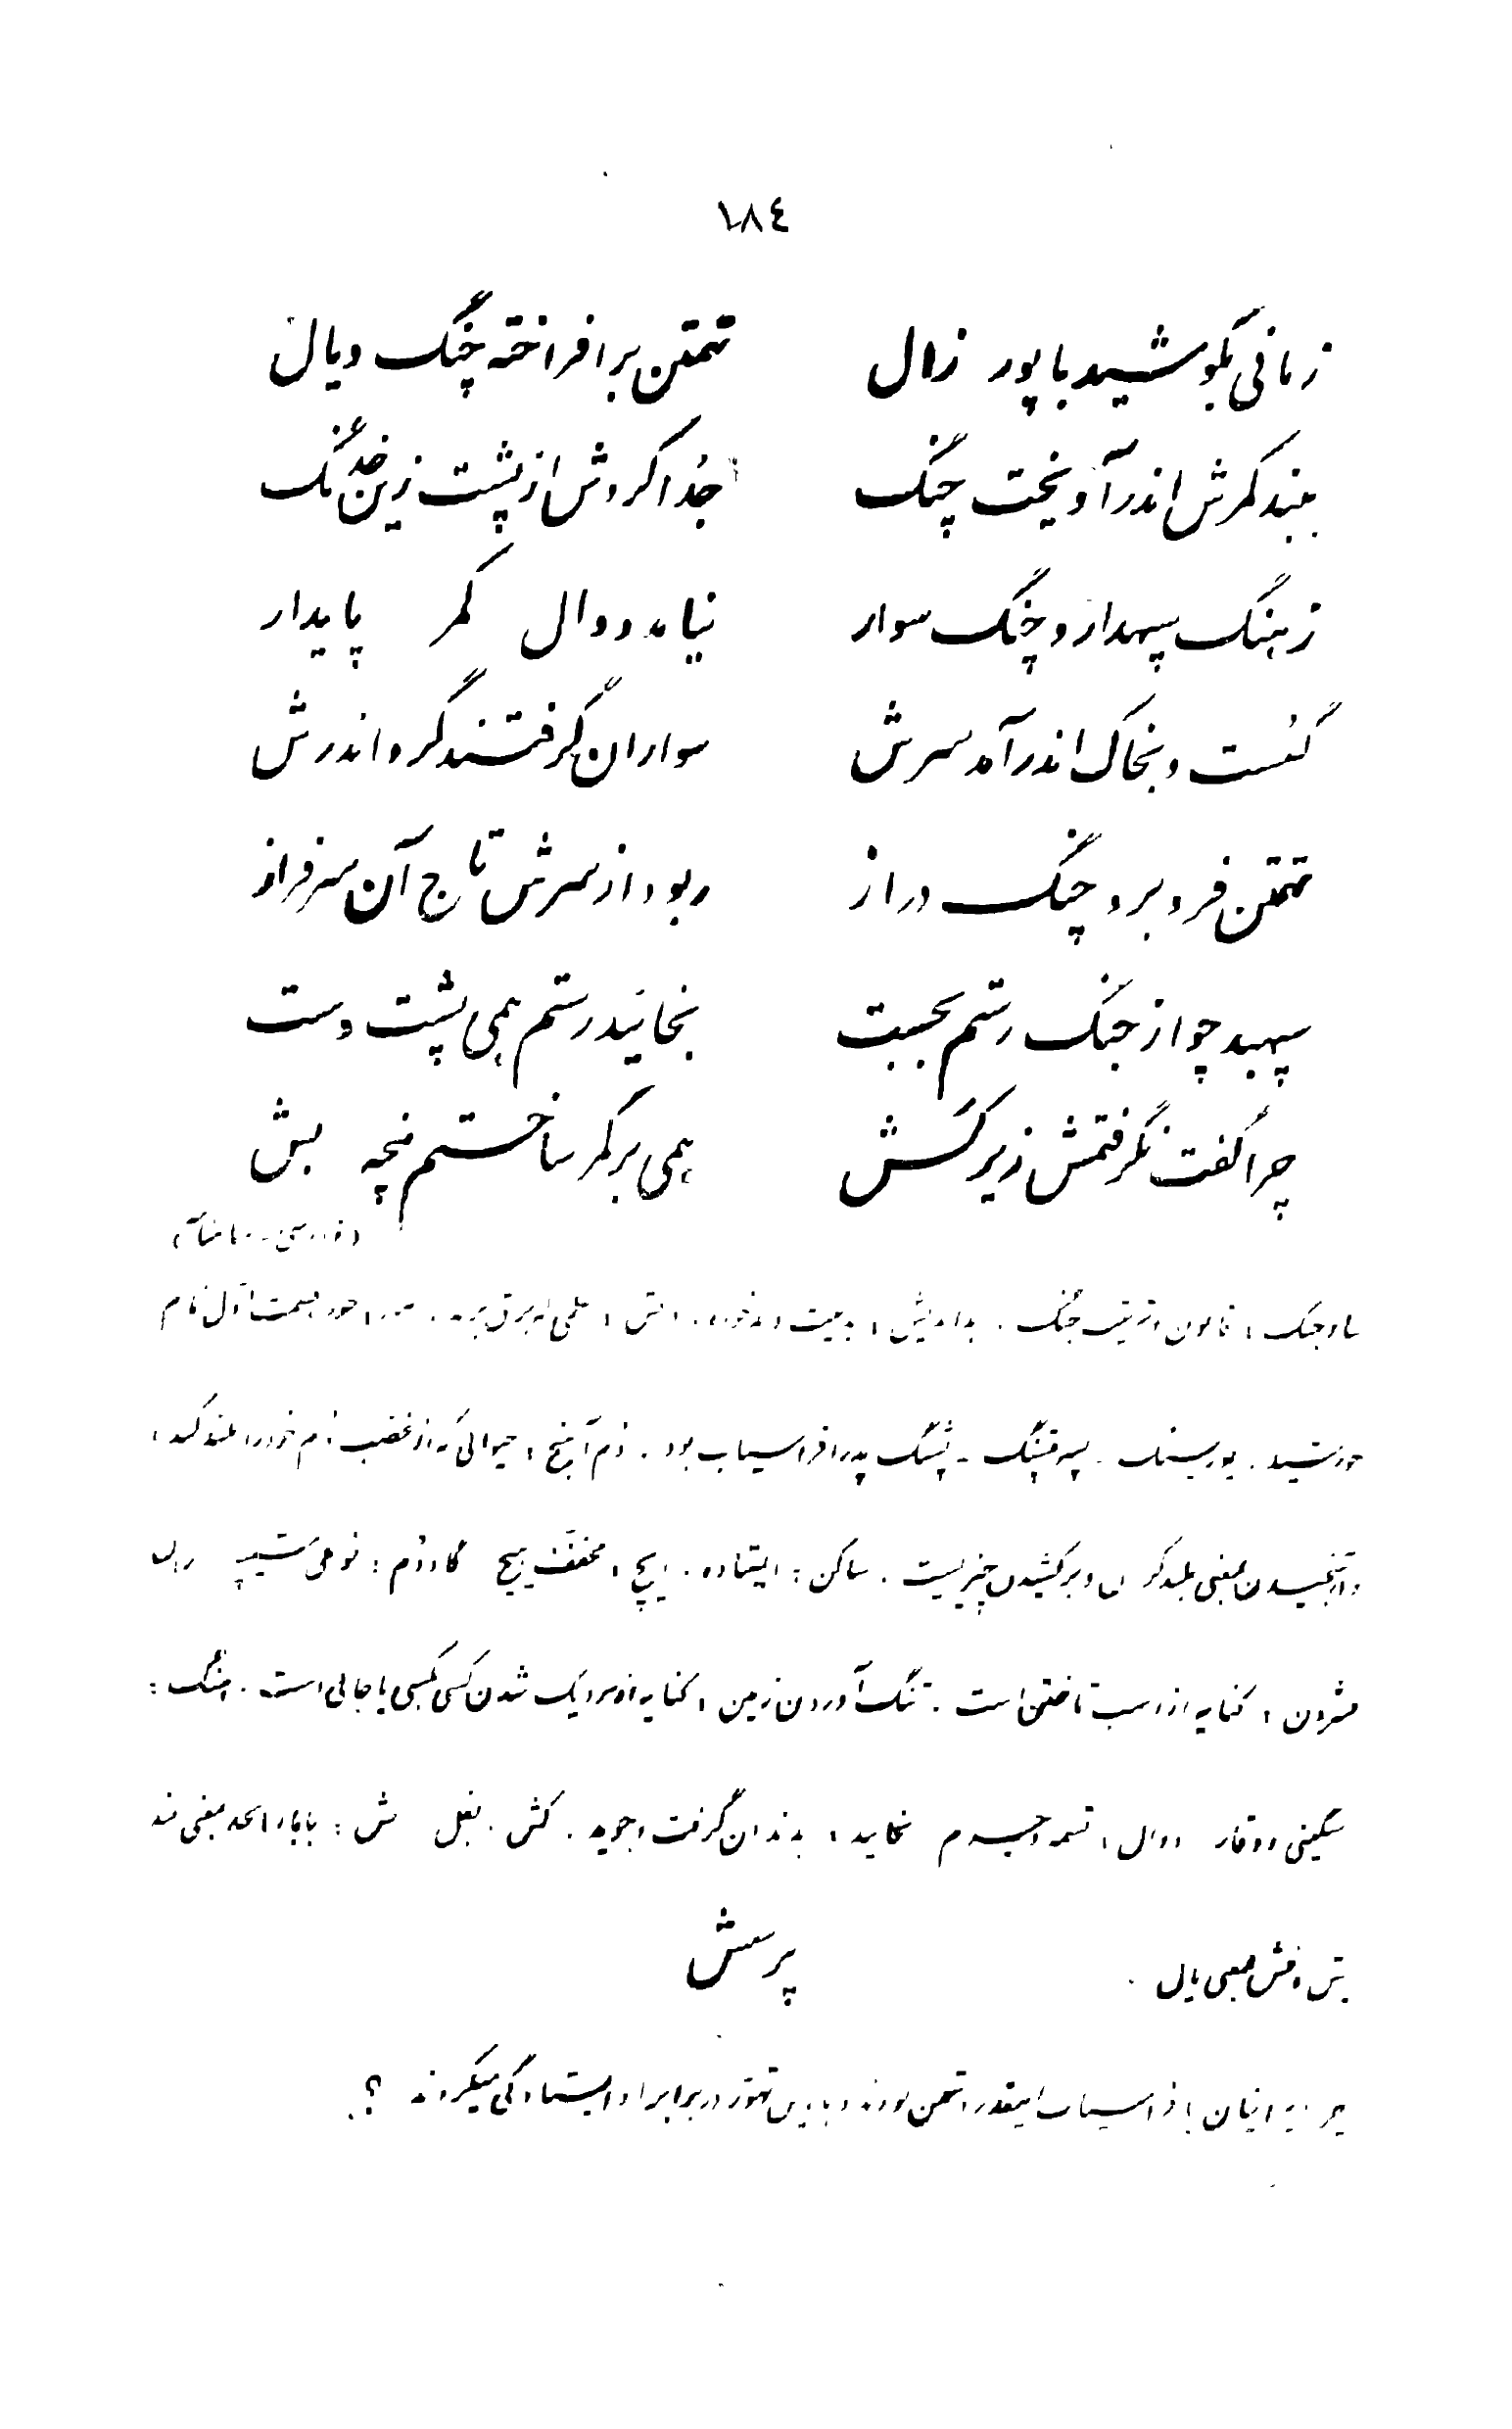 ١٨٤
زمانی بکوشید با پور زال تهمتن برافراخته چنگ و یال
ببند کمرش اندر آویخت چنگ جُدا کردش از پشت زین خدنگ
ز هنگ سپهدار و چنگ سوار نیامد دوال کمر پایدار
گسست و بخاک اندر آمد سرش سواران گرفتند گرد اندرش
تهمتن فرو برد چنگ دراز ربود از سرش تاج آن سرفراز
سپهبد چو از جنگ رستم بجست بخائید رستم همی پشت دست
چرا گفت نگرفتمش زیر کش همی بر کمر ساختم پنجه بش
جنگ : قانون و ترتیب جنگ . بداندیش : قسمت اوّل نام
خورشید . پور پشنگ . پسر پشنگ - پشنگ پدر افراسیاب بود . دُم آهنج : حیوانی که از غضب دُم خود را بلند کند ،
و آهنجیدن بمعنی بلند کردن و برکشیدن چیزیست . ساکن : ایستاده . مخفّف هیچ گاودُم : نوعی شیپور ران
فشردن : کنایه از اسب تاختن است . تنگ آوردن زمین : کنایه از نزدیک شدن کسی بکسی یا جائی است . هنگ :
سنگینی و وقار دوال : تسمه و چرم خائید : بدندان گرفت و جوید . کش . بغل بش : بمعنی بند
پرسش
ایرانیان با افراسیاب اینقدر دشمن بودند و با این تهور در برابر او ایستادگی میکردند ؟